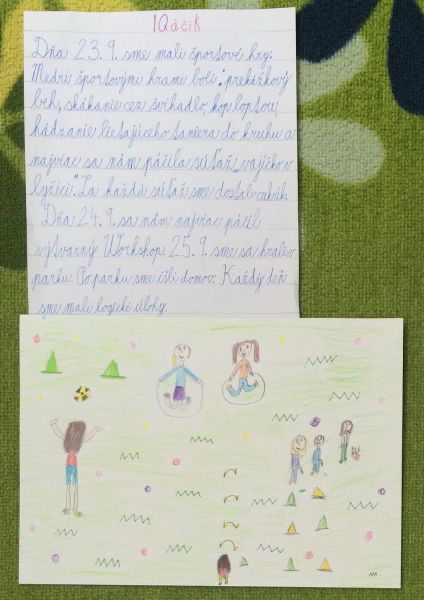 IQáčik
Dňa 23.9. sme mali športové hry.
Medzi športovými hrami boli: prekážkový
beh, skákanie cez švihadlo, kop loptou,
hádzanie lietajúceho taniera do kruhu a
najviac sa nám páčila súťaž „vajíčko v
lyžici". Za každú súťaž sme dostali cukrík.
Dňa 24.9. sa nám najviac páčil
výtvarný Workshop. 25.9. sme sa hrali v
parku. Po parku sme išli domov. Každý deň
sme mali logické úlohy.